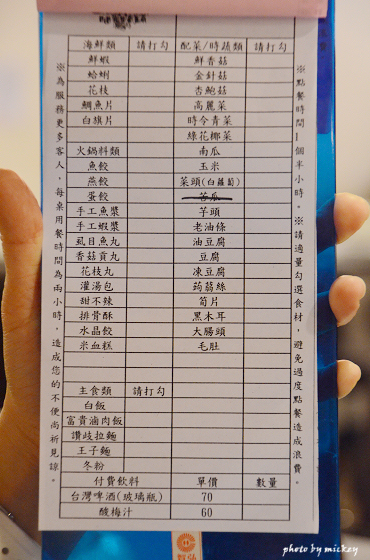 海鮮類 請打勾 配菜/時蔬類 請打勾
鮮蝦 鮮香菇
蛤蜊 金針菇
花枝 杏鮑菇
鯛魚片 高麗菜
白旗片 時令青菜
綠花椰菜
火鍋料類 南瓜
魚餃 玉米
燕餃 菜頭(白蘿蔔)
蛋餃 苦瓜
手工魚漿 芋頭
手工蝦漿 老油條
虱目魚丸 油豆腐
香菇貢丸 豆腐
花枝丸 凍豆腐
灌湯包 蒟蒻絲
甜不辣 筍片
排骨酥 黑木耳
水晶餃 大腸頭
米血糕 毛肚
主食類 請打勾
白飯
富貴滷肉飯
讚歧拉麵
王子麵
冬粉
付費飲料 單價 數量
台灣啤酒(玻璃瓶) 70
酸梅汁 60
※為服務更多客人，每桌用餐時間為兩小時，造成您的不便尚祈見諒。
※點餐時間1個半小時。※請適量勾選食材，避免過度點餐造成浪費。
photo by mickey